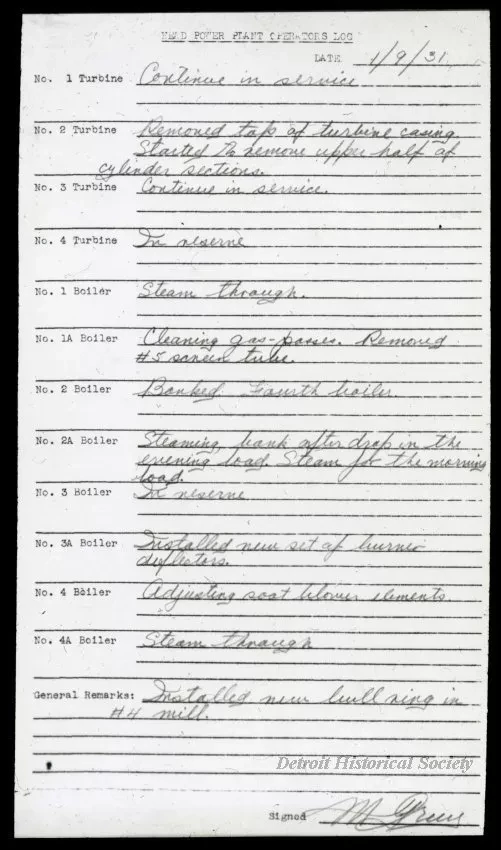 HEAD POWER PLANT OPERATORS LOG
DATE 1/9/31
No. 1 Turbine Continue in service
No. 2 Turbine Removed top of turbine casing.
Started to remove upper half of
cylinder sections.
No. 3 Turbine Continue in service.
No. 4 Turbine In reserve
No. 1 Boiler Steam through.
No. 1A Boiler Cleaning gas-passes. Removed
#5 screen tube.
No. 2 Boiler Banked. Fourth boiler.
No. 2A Boiler Steaming, bank after drop in the
evening load. Steam for the morning
load.
No. 3 Boiler In reserve
No. 3A Boiler Installed new set of burner
deflectors.
No. 4 Boiler Adjusting soot blower elements.
No. 4A Boiler Steam through
General Remarks: Installed new bull ring in
#4 mill.
Detroit Historical Society
Signed M